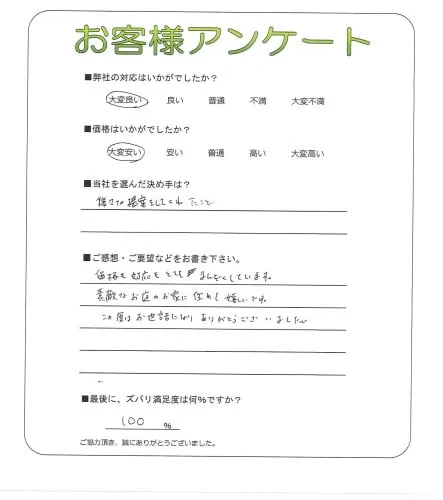 お客様アンケート
■弊社の対応はいかがでしたか?
大変良い 良い 普通 不満 大変不満
■価格はいかがでしたか?
大変安い 安い 普通 高い 大変高い
■当社を選んだ決め手は?
提案をしてくれたこと
■ご感想・ご要望などをお書き下さい。
価格も対応もとてもまんぞくしています。
素敵なお庭のお家に住めて嬉しいです。
この度はお世話になりありがとうございました
■最後に、ズバリ満足度は何%ですか?
100 %
ご協力頂き、誠にありがとうございました。